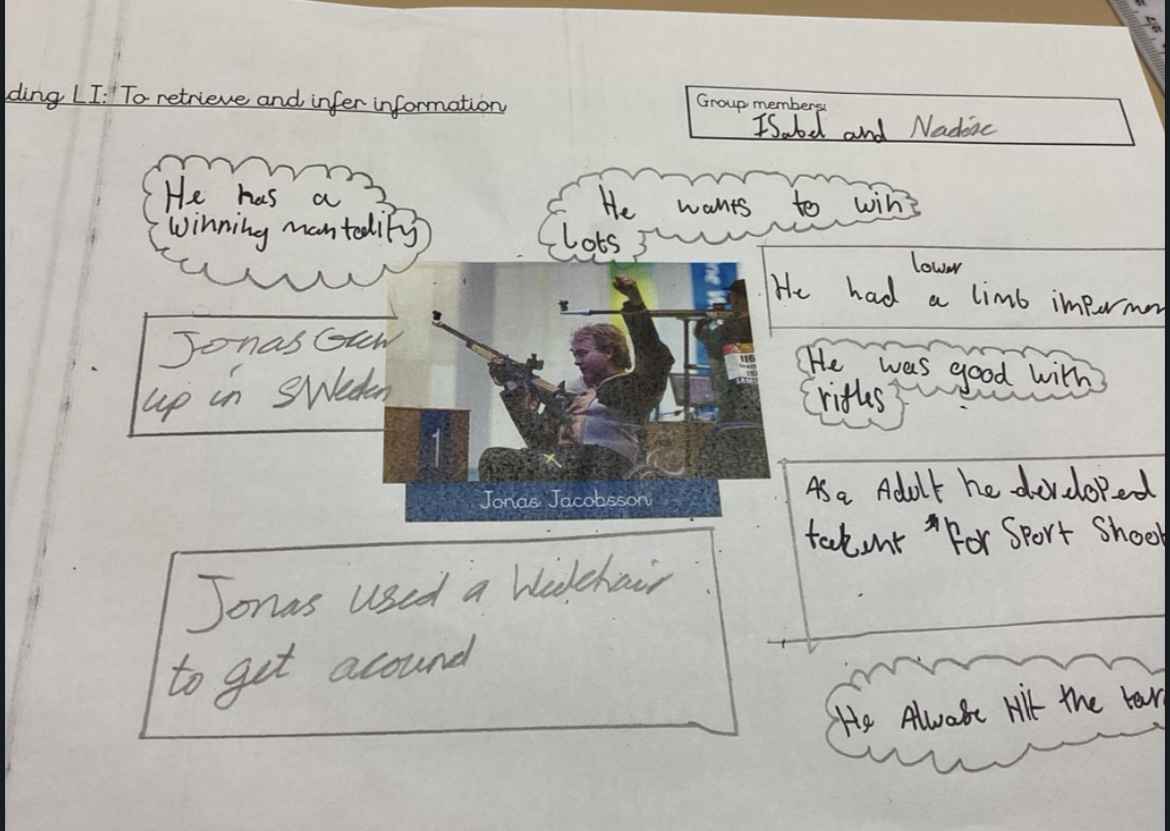 ding LI: To retrieve and infer information
Group members:
ISabel and Nadine
He has a
winning mantality
He wants to win
Lots
lower
He had a limb impermen
Jonas Grew
up in SWeden
He was good with
rifles
116
1
Jonas Jacobsson
As a Adult he developed
talent for Sport Shoot
Jonas used a Weelchair
to get around
He Alwase Hit the tar